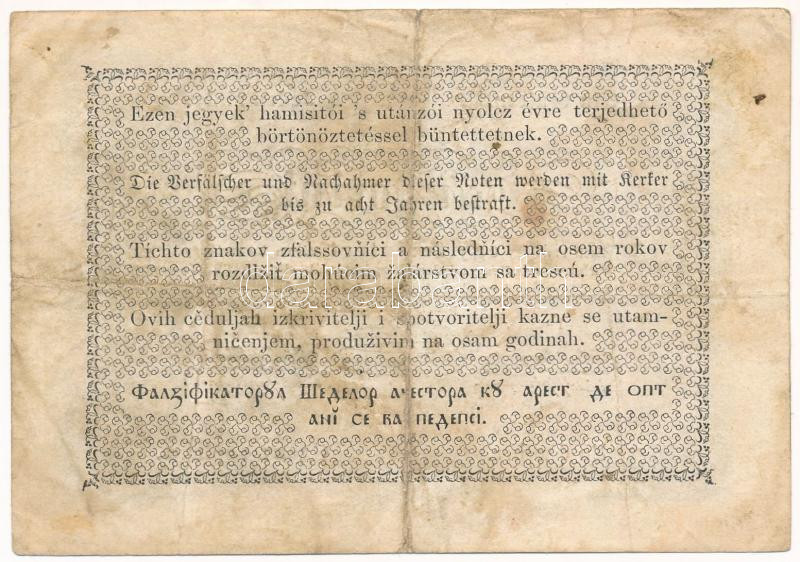 Ezen jegyek' hamisitói 's utánzói nyolcz évre terjedhető
börtönöztetéssel büntettetnek.
Die Verfälscher und Nachahmer dieser Noten werden mit Kerker
bis zu acht Jahren bestraft.
Tíchto znakov zfalssovňíci a následníci na osem rokov
rozdlžiť mohúcim žalárstvom sa trescú.
darabanth
Ovih cěduljah izkrivitelji i spotvoritelji kazne se utam-
ničenjem, produživim na osam godinah.
Фалзіфікаторꙋл Шеделор ачестора кꙋ арест де опт
анй се ва педепсі.